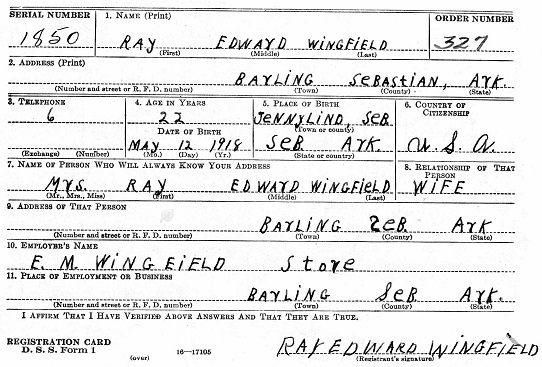 SERIAL NUMBER 1. NAME (Print) ORDER NUMBER
1850 RAY EDWARD WINGFIELD 327
(First) (Middle) (Last)
2. ADDRESS (Print)
BARLING SEBASTIAN, ARK.
(Number and street or R. F. D. number) (Town) (County) (State)
3. TELEPHONE 4. AGE IN YEARS 5. PLACE OF BIRTH 6. COUNTRY OF CITIZENSHIP
6 22 JENNYLIND, SEB.
DATE OF BIRTH (Town or county)
MAY 12 1918 SEB ARK. U. S. A.
(Exchange) (Number) (Mo.) (Day) (Yr.) (State or country)
7. NAME OF PERSON WHO WILL ALWAYS KNOW YOUR ADDRESS 8. RELATIONSHIP OF THAT PERSON
Mrs. RAY EDWARD WINGFIELD WIFE
(Mr., Mrs., Miss) (First) (Middle) (Last)
9. ADDRESS OF THAT PERSON
BARLING SEB. ARK
(Number and street or R. F. D. number) (Town) (County) (State)
10. EMPLOYER'S NAME
E. M. WINGFIELD Store
11. PLACE OF EMPLOYMENT OR BUSINESS
BARLING SEB ARK.
(Number and street or R. F. D. number) (Town) (County) (State)
I AFFIRM THAT I HAVE VERIFIED ABOVE ANSWERS AND THAT THEY ARE TRUE.
REGISTRATION CARD
D. S. S. Form 1 (over) 16—17105 RAY EDWARD WINGFIELD
(Registrant's signature)